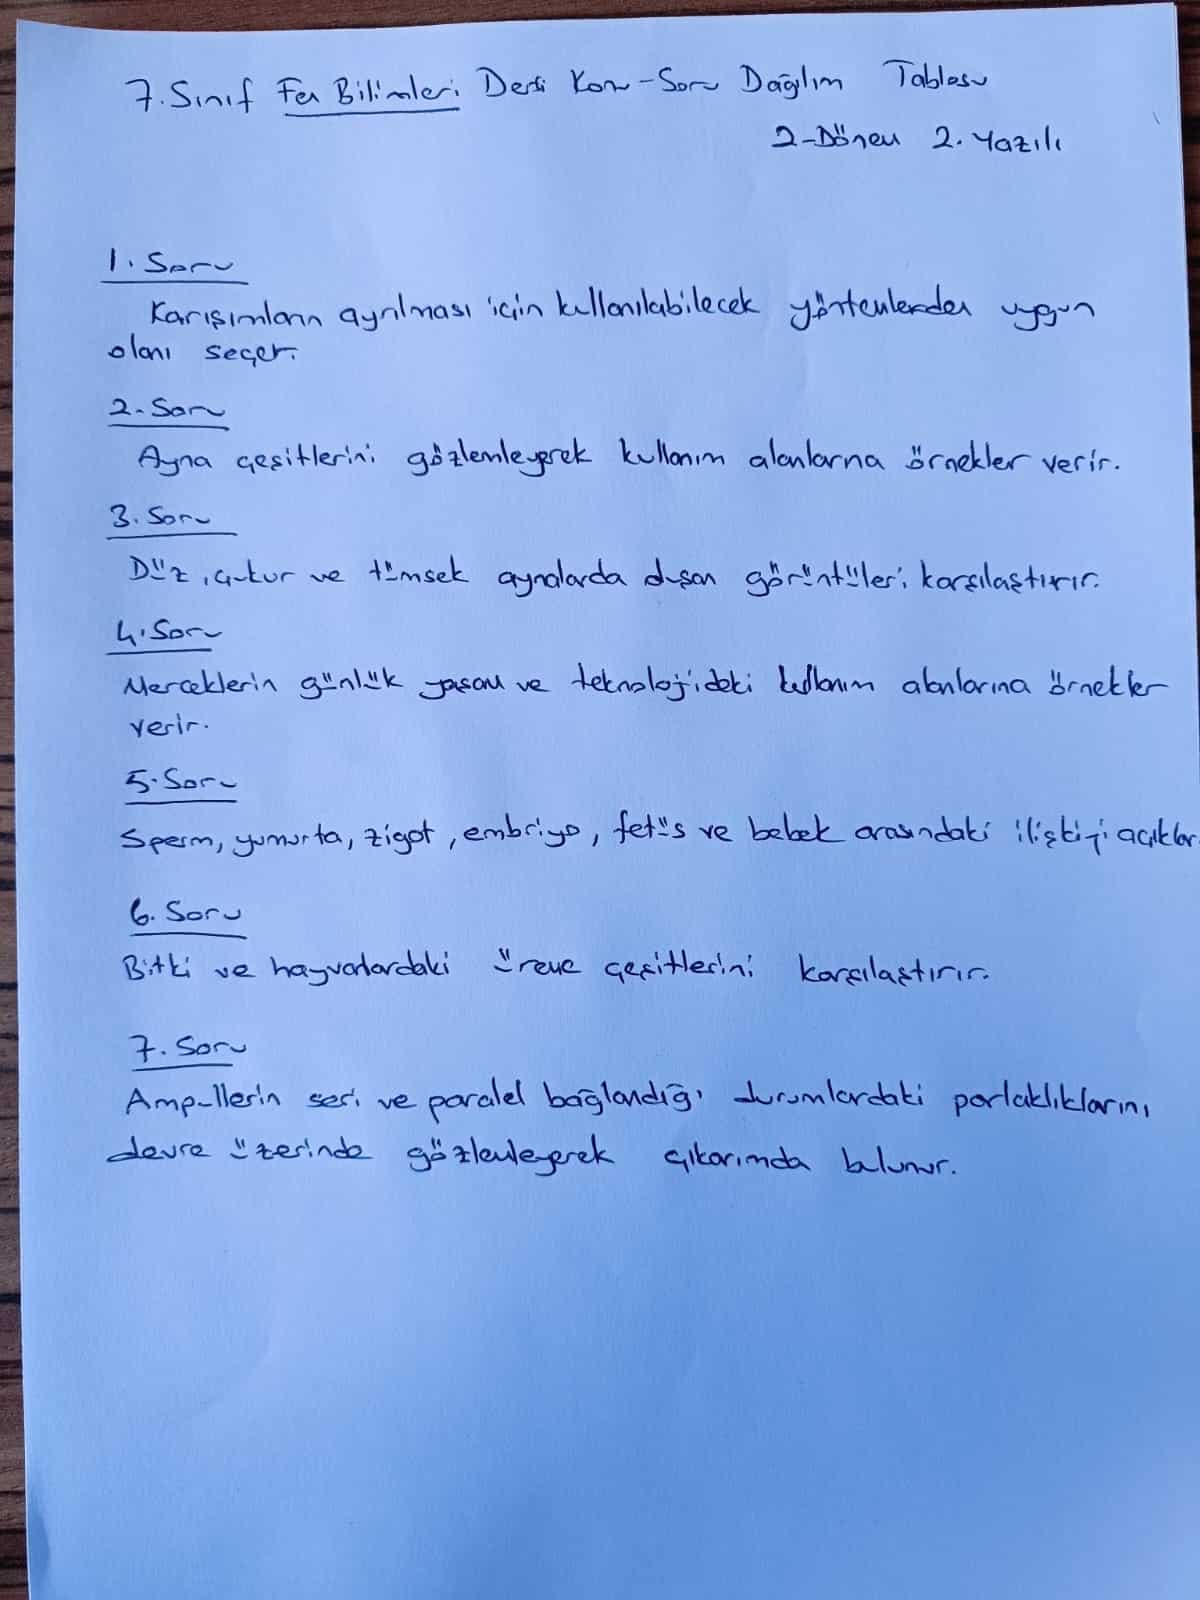 7. Sınıf Fen Bilimleri Dersi Konu-Soru Dağılım Tablosu
2-Dönem 2. Yazılı
1. Soru
Karışımların ayrılması için kullanılabilecek yöntemlerden uygun
olanı seçer.
2. Soru
Ayna çeşitlerini gözlemleyerek kullanım alanlarına örnekler verir.
3. Soru
Düz, çukur ve tümsek aynalarda oluşan görüntüleri karşılaştırır.
4. Soru
Merceklerin günlük yaşam ve teknolojideki kullanım alanlarına örnekler
verir.
5. Soru
Sperm, yumurta, zigot, embriyo, fetüs ve bebek arasındaki ilişkiyi açıklar.
6. Soru
Bitki ve hayvanlardaki üreme çeşitlerini karşılaştırır.
7. Soru
Ampullerin seri ve paralel bağlandığı durumlardaki parlaklıklarını
devre üzerinde gözlemleyerek çıkarımda bulunur.